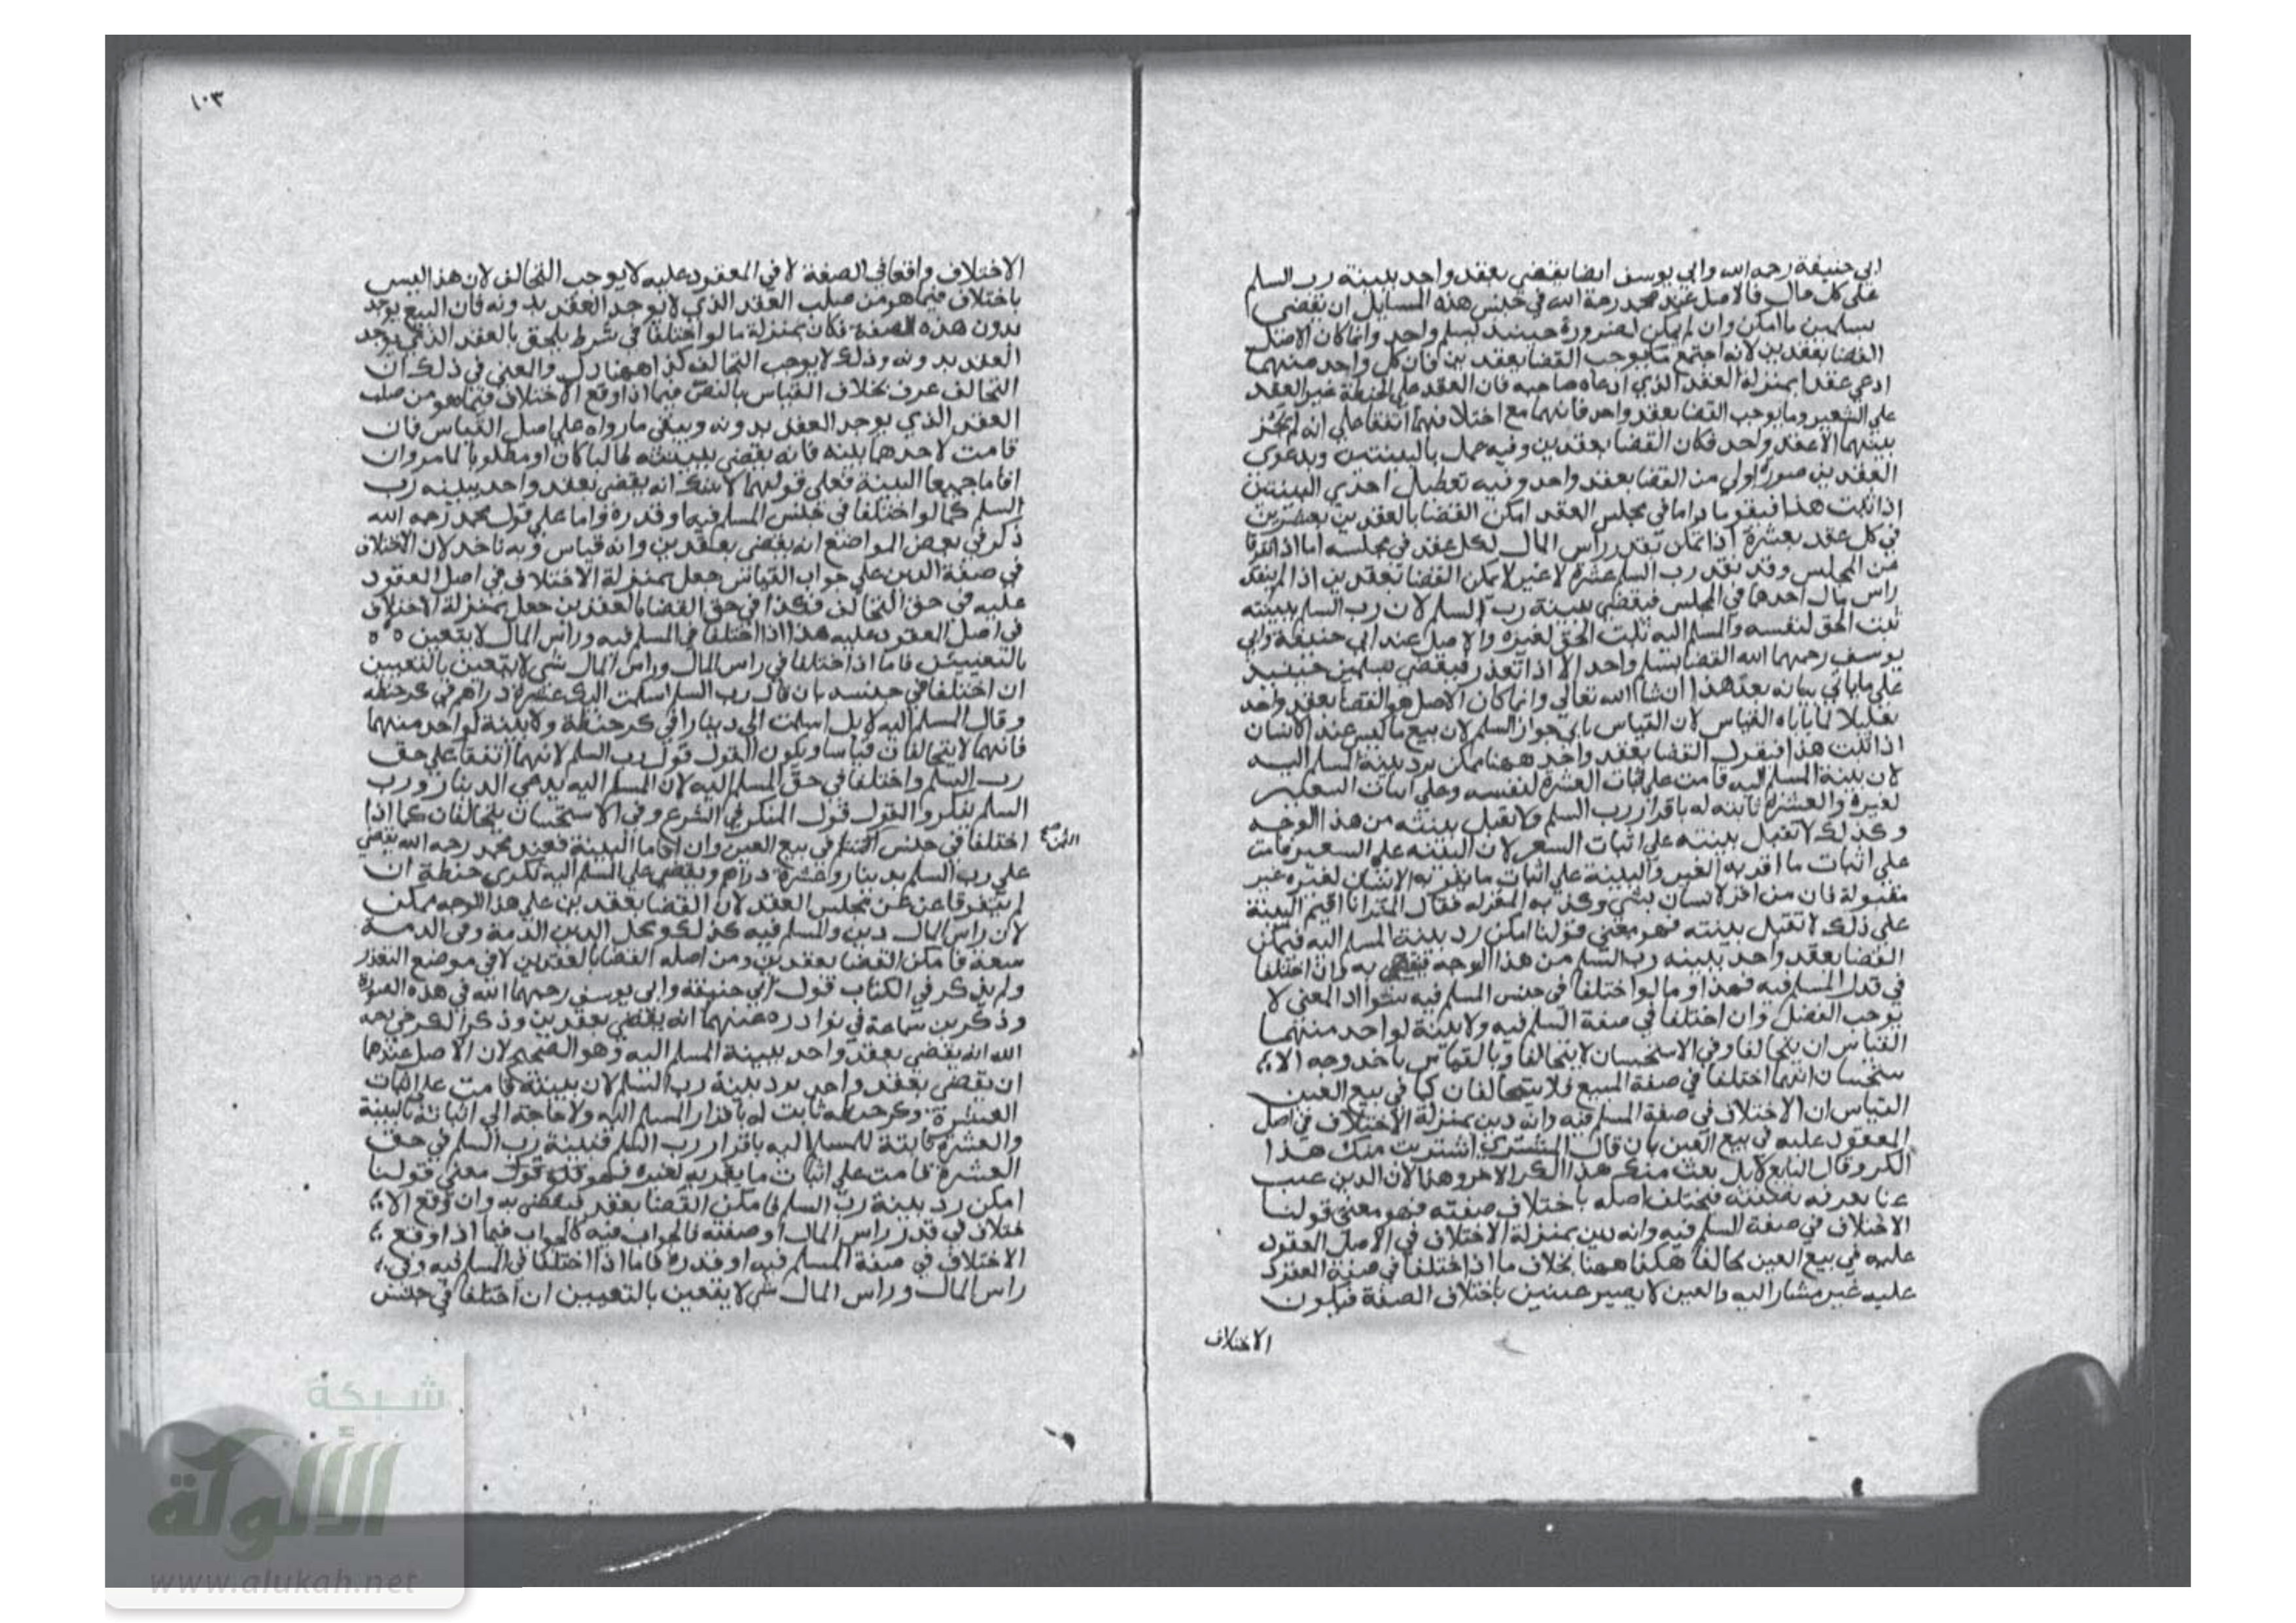 ابي حنيفة رحمه الله وابي يوسف ايضا يقضي بعقد واحد ببينة رب السلم
على كل حال فالاصل عند محمد رحمة الله في جنس هذه المسايل ان يقضي
بسلمين ما امكن وان لم يمكن لضرورة حينيذ بسلم واحد وانما كان الاصل
القضا بعقدين لانه اجتمع ما يوجب القضا بعقدين فان كل واحد منهما
ادعى عقدا بمنزلة العقد الذي ادعاه صاحبه فان العقد على الحنطة غير العقد
على الشعير وما يوجب القضا بعقد واحد فانهما مع اختلافهما اتفقا على انه لم يجز
بينهما الا عقد واحد فكان القضا بعقدين وفيه عمل بالبينتين وبدعوى
العقدين صورة اولي من القضا بعقد واحد وفيه تعطيل احدي البينتين
اذا ثبت هذا فيقو ما داما في مجلس العقد امكن القضا بالعقدين
في كل عقد بعشرة اذا تمكن نقد راس المال لكل عقد في مجلسه اما اذا افترقا
عن المجلس وقد نقد رب السلم عشرة لا غير لا يمكن القضا بعقدين اذا لم ينقد
راس مال احدهما في المجلس فيقضي ببينة رب السلم لان رب السلم ببينته
ثبت الحق لنفسه والمسلم اليه ثبت الحق لغيره والاصل عند ابي حنيفة وابي
يوسف رحمهما الله القضا بسلم واحد الا اذا تعذر فيقضي بسلمين حينيذ
على ما ياتي بيانه بعد هذا ان شا الله تعالي وانما كان الاصل هو القضا بعقد واحد
تقليلا لما ياباه القياس لان القياس يابي جواز السلم لان بيع ما ليس عند الانسان
اذا ثبت هذا فيقول القضا بعقد واحد ههنا ممكن برد بينة المسلم اليه
لان بينة المسلم اليه قامت على اثبات العشرة لنفسه وعلى اثبات الشعير
لغيره والعشرة ثابته له باقرار رب السلم ولا تقبل بينته من هذا الوجه
وكذلك لا تقبل بينته على اثبات الشعير لان البينه على الشعير قامت
على اثبات ما اقر به الغير والبينة على اثبات ما يقر به الانسان لغيره غير
مقبولة فان من اقر لانسان بشي وكذبه المقرله فقال المقر انا اقيم البينة
على ذلك لا تقبل بينته فهو معني قولنا امكن رد بينة المسلم اليه فيمكن
القضا بعقد واحد ببينه رب السلم من هذا الوجه فيقضي به وان اختلفا
في قدر المسلم فيه فهذا وما لو اختلفا في جنس المسلم فيه سوا اذ المعني لا
يوجب الفصل وان اختلفا في صفة السلم فيه ولا بينة لواحد منهما
القياس ان يتحالفا وفي الاستحسان لا يتحالفا وبالقياس ياخد وجه الا
ستحسان انهما اختلفا في صفة المبيع فلا يتحالفان كما في بيع العين
القياس ان الاختلاف في صفة المسلم فيه وانه دين بمنزلة الاختلاف في اصل
المعقود عليه في بيع العين بان قال المشتري اشتريت منك هذا
الكر وقال البايع لا بل بعت منك هذا الكر الاخر وهنا لان الدين
يعرف بصفته فيختلف اصله باختلاف صفته فهو معني قولنا
الاختلاف في صفة السلم فيه وانه دين بمنزلة الاختلاف في الاصل المعقود
عليه في بيع العين هكذا ههنا بخلاف ما اذا اختلفا في صفة العقود
عليه غير مشار اليه والعين لا يصير عينين باختلاف الصفة فيكون
الاختلاف
١٠٣
الاختلاف واقعا في الصفة لا في المعقود عليه لا يوجب التحالف لان هذا ليس
باختلاف فيما هو من صلب العقد الذي لا يوجد العقد بدونه فان البيع يوجد
بدون هذه الصفة فكان بمنزلة ما لو اختلفا في شرط يلحق بالعقد الذي يوجد
العقد بدونه وذلك لا يوجب التحالف كذا ههنا دل والمعني في ذلك ان
التحالف عرف بخلاف القياس بالنص فيما اذا وقع الاختلاف فيما هو من صلب
العقد الذي يوجد العقد بدونه ويبقي ما رواه على اصل القياس فان
قامت لاحدهما بينة فانه يقضي ببينته طالبا كان او مطلوبا لما مر وان
اقاما جميعا البينة فعلى قولهما لا شك انه يقضي بعقد واحد ببينه رب
السلم كما لو اختلفا في جنس المسلم فيه او قدره واما على قول محمد رحمه الله
ذكر في بعض المواضع انه يقضي بعقدين وانه قياس وبه ناخد لان الاختلاف
في صفة الدين على جواب القياس جعل بمنزلة الاختلاف في اصل العقود
عليه في حق التحالف فكذا في حق القضا بالعقدين جعل بمنزلة الاختلاف
في اصل العقود عليه هذا اذا اختلفا في المسلم فيه وراس المال لا يتعين ٥ ٥
بالتعيين فاما اذا اختلفا في راس المال وراس المال شي لا يتعين بالتعيين
ان اختلفا في جنسه بان قال رب السلم اسلمت اليك عشرة دراهم في كر حنطه
وقال المسلم اليه لا بل اسلمت الي دينارا في كر حنطة ولا بينة لواحد منهما
فانهما لا يتحالفان قياسا ويكون القول قول رب السلم لانهما اتفقا على حق
رب السلم واختلفا في حق المسلم اليه لان المسلم اليه يدعي الدينار ورب
السلم ينكر والقول قول المنكر في الشرع وفي الاستحسان يتحالفان كما اذا
اختلفا في جنس الثمن في بيع العين وان اقاما البينة فعند محمد رحمه الله يقضي
الثمن صح
على رب السلم بدينار وعشرة دراهم ويقضي على المسلم اليه بكري حنطة ان
لم يتفرقا عن مجلس العقد لان القضا بعقدين على هذا الوجه ممكن
لان راس المال دين والمسلم فيه كذلك ومحل الدين الذمة وفي الذمة
سعة فامكن القضا بعقدين ومن اصله القضا بالعقدين لا في موضع التعذر
ولم يذكر في الكتاب قول ابي حنيفة وابي يوسف رحمهما الله في هذه الصورة
وذكر بن سماعة في نوادره عنهما انه يقضي بعقدين وذكر الكرخي رحمه
الله انه يقضي بعقد واحد ببينة المسلم اليه وهو الصحيح لان الاصل عندهما
ان يقضي بعقد واحد برد بينة رب السلم لان بينته قامت على اثبات
العشرة وكر حنطه ثابت له باقرار المسلم اليه ولا حاجة الي اثباته بالبينة
والعشرة ثابتة للمسلم اليه باقرار رب السلم فبينة رب السلم في حق
العشرة قامت على اثبات ما يقر به لغيره فهو معني قولنا
امكن رد بينة رب السلم فامكن القضا بعقد فيقضي به وان وقع الا
ختلاف في قدر راس المال او صفته فالجواب فيه كالجواب فيما اذا وقع
الاختلاف في صفة المسلم فيه او قدره فاما اذا اختلفا في المسلم فيه وفي
راس المال وراس المال شي لا يتعين بالتعيين ان اختلفا في جنس
شبكة
الألوكة
www.alukah.net